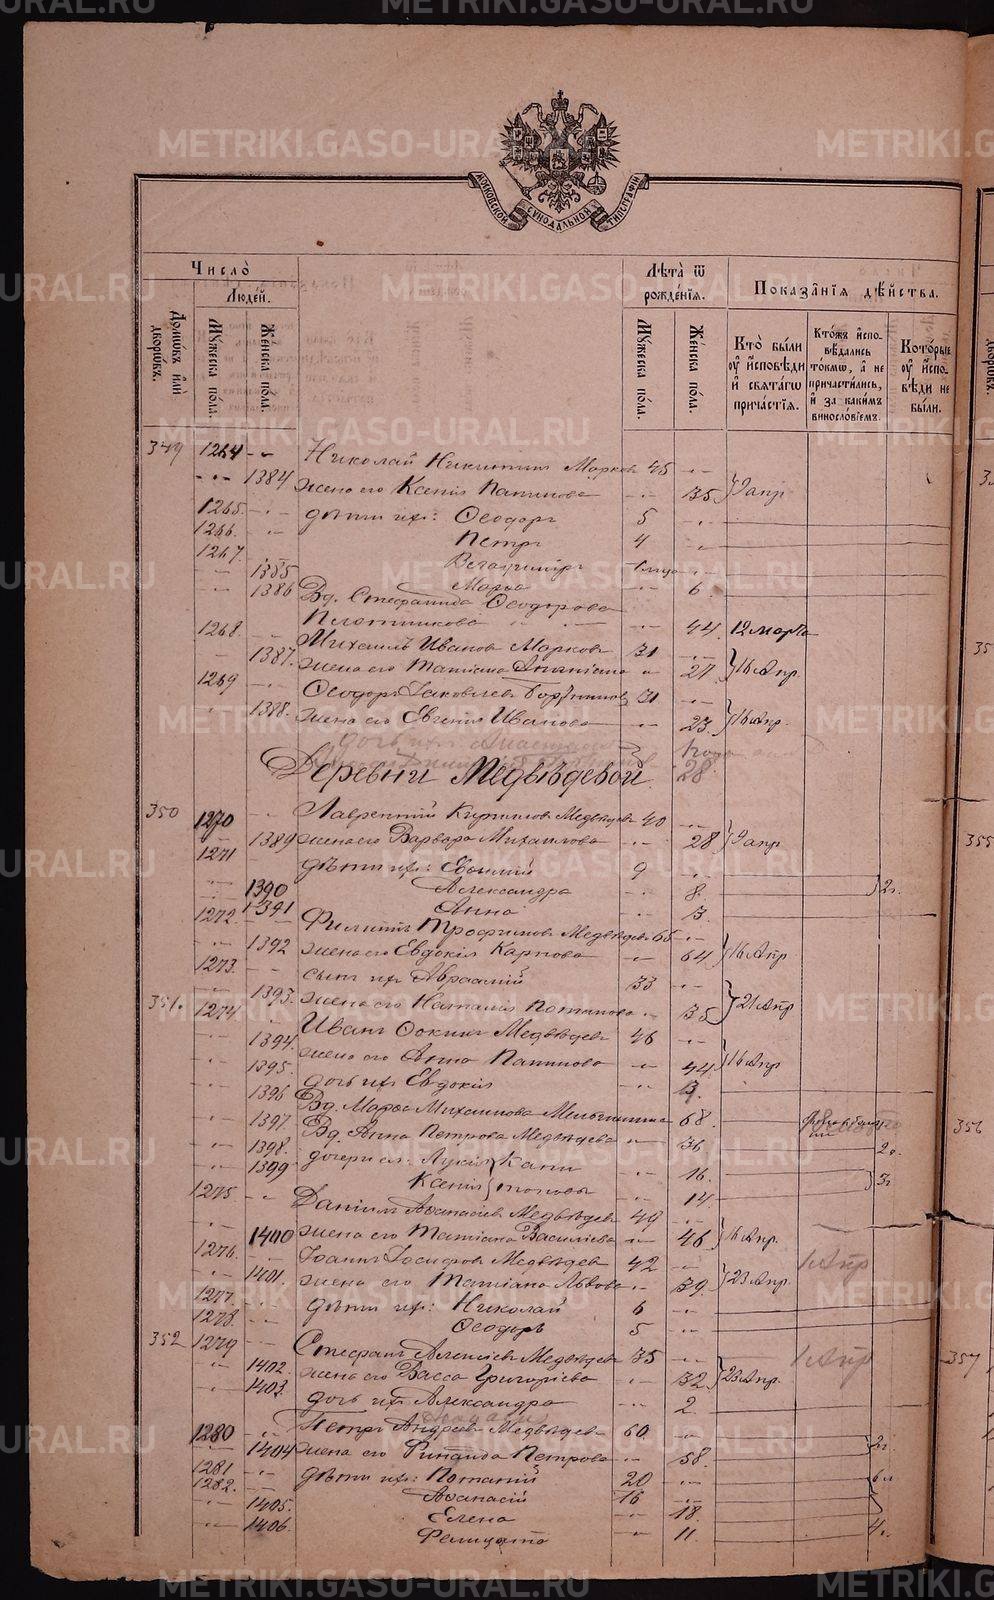 МОСКОВСКОЙ СУНОДАЛЬНОЙ ТИПОГРАФІИ
Число̀
Людей.
Домѡвъ илѝ дворѡвъ.
Мужеска по́ла.
Же́нска по́ла.
Лѣта̀ ѿ рождéнїѧ.
Мужеска по́ла.
Же́нска по́ла.
Показа̂нїѧ дѣ́йства.
Кто̀ бы́ли ᲂу҆ и҆́сповѣди и҆ свѧта́гѡ прича́стїѧ.
Кто́жъ и҆спо-вѣ́дались то́кмѡ, а҆ не причасти́лись, и҆ за каки́мъ винослѡ́вїемъ.
Кото́рые ᲂу҆ и҆́спо-вѣди не бы́ли.
349 1264 Николай Никитинъ Марковъ 45
1384 жена его Ксенія Папинова 35 9 апр
1265 дѣти ихъ: Ѳеодоръ 5
1266 Петръ 4
1267 Владиміръ
1385 Марѳа 6
1386 Вд. Стефанида Ѳеодорова
Плотникова 44 12 марта
1268 Михаилъ Иванов Марковъ 31
1387 жена его Татіана Ананіина 27 16 Апр.
1269 Ѳеодоръ Іаковлевъ 31
1388 жена его Евгенія Иванова 23 16 Апр.
дочь ихъ Анастасія
28
Деревни Медвѣдевой.
350 1270 Лаврентій Кириловъ Медвѣдевъ 40
1389 жена его Варвара Михаилова 28 9 апр
1271 дѣти ихъ: Евѳимій 9
1390 Александра 8 2 г.
1391 Анна 3
1272 Филиппъ Трофимовъ Медвѣдевъ 65
1392 жена его Евдокія Карпова 64 16 Апр
1273 сынъ ихъ Авраамій 33
1393 жена его Наталія Потапова 35 21 Апр
351 1274 Иванъ Ѳокинъ Медвѣдевъ 46
1394 жена его Анна Папинова 44 16 Апр
1395 дочь ихъ Евдокія
1396 Вд. Марѳа Михаилова 68
1397 Вд. Анна Петрова Медвѣдева 36 2 г.
1398 дочери ея Лукія Капи- 16 3 г
1399 Ксенія тоновы 14
1275 Даніилъ Аѳанасіевъ Медвѣдевъ 49
1400 жена его Татіана Василіева 46 16 Апр.
1276 Іоаннъ Іосифовъ Медвѣдевъ 42 1 Апр
1401 жена его Татіана Львова 39 23 Апр.
1277 дѣти ихъ: Николай 6
1278 Ѳеодоръ 5
352 1279 Стефанъ Алексіевъ Медвѣдевъ 35 1 Апр
1402 жена его Васса Григоріева 32 23 Апр.
1403 дочь ихъ Александра 2
1280 Петръ Андреевъ Медвѣдевъ 60
1404 жена его Петрова 58 2 г.
1281 дѣти ихъ: Потапій 20 6 л
1282 Аѳанасій 16
1405 Елена 18
1406 Фелицата 11 4 г.
355
356
357
METRIKI.GASO-URAL.RU